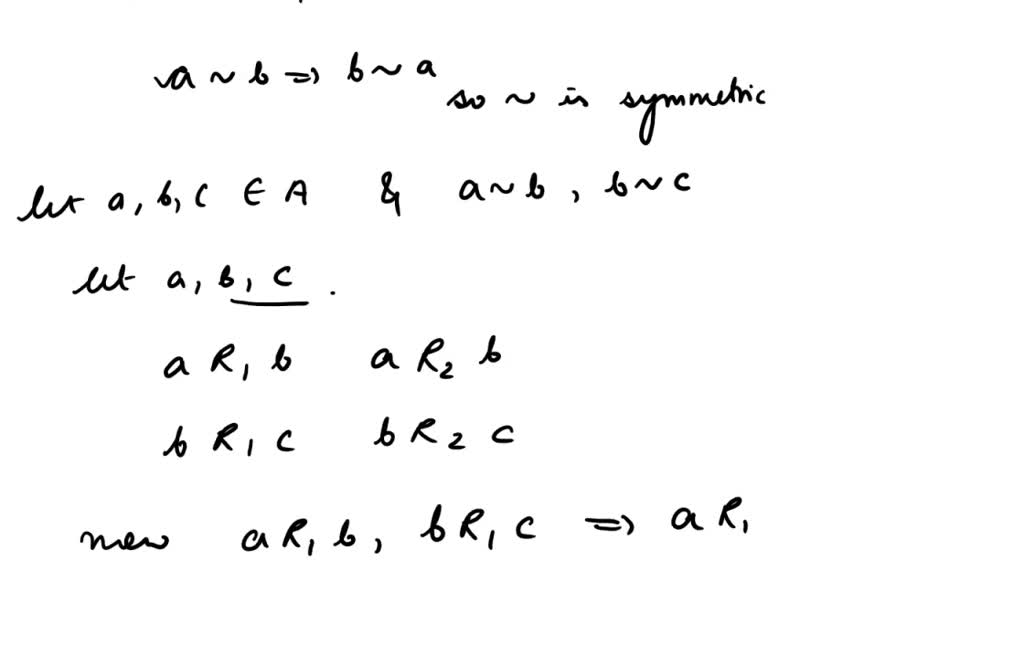 a ~ b => b ~ a
so ~ is symmetric
let a, b, c ∈ A & a ~ b , b ~ c
let a, b, c .
a R₁ b a R₂ b
b R₁ c b R₂ c
now a R₁ b, b R₁ c => a R₁